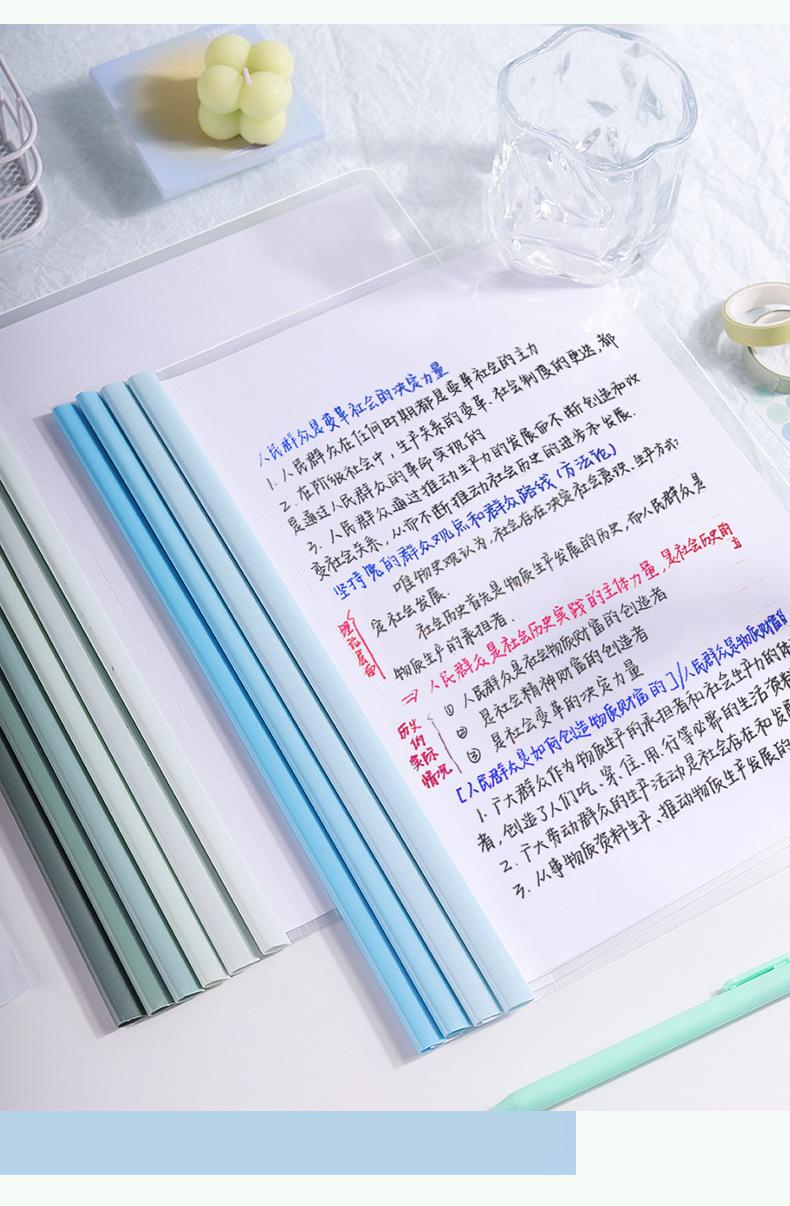 人民群众是变革社会的决定力量
1. 人民群众在任何时期都是变革社会的主力
2. 在阶级社会中,生产关系的变革、社会制度的更迭,都
是通过人民群众的革命实现的
3. 人民群众通过推动生产力的发展而不断创造和改
变社会关系,从而不断推动社会历史的进步和发展.
坚持党的群众观点和群众路线(方法论)
唯物史观认为,社会存在决定社会意识、生产方式
定社会发展.
社会历史首先是物质生产发展的历史,而人民群众是
物质生产的承担者.
理论层面
⇒ 人民群众是社会历史实践的主体力量,是社会历史的
主
历史的实际情况
① 人民群众是社会物质财富的创造者
② 是社会精神财富的创造者
③ 是社会变革的决定力量
[人民群众是如何创造物质财富的]/人民群众是物质财富的
1. 广大群众作为物质生产的承担者和社会生产力的体
者,创造了人们吃、穿、住、用、行等必需的生活资料
2. 广大劳动群众的生产活动是社会存在和发展
3. 从事物质资料生产、推动物质生产发展的